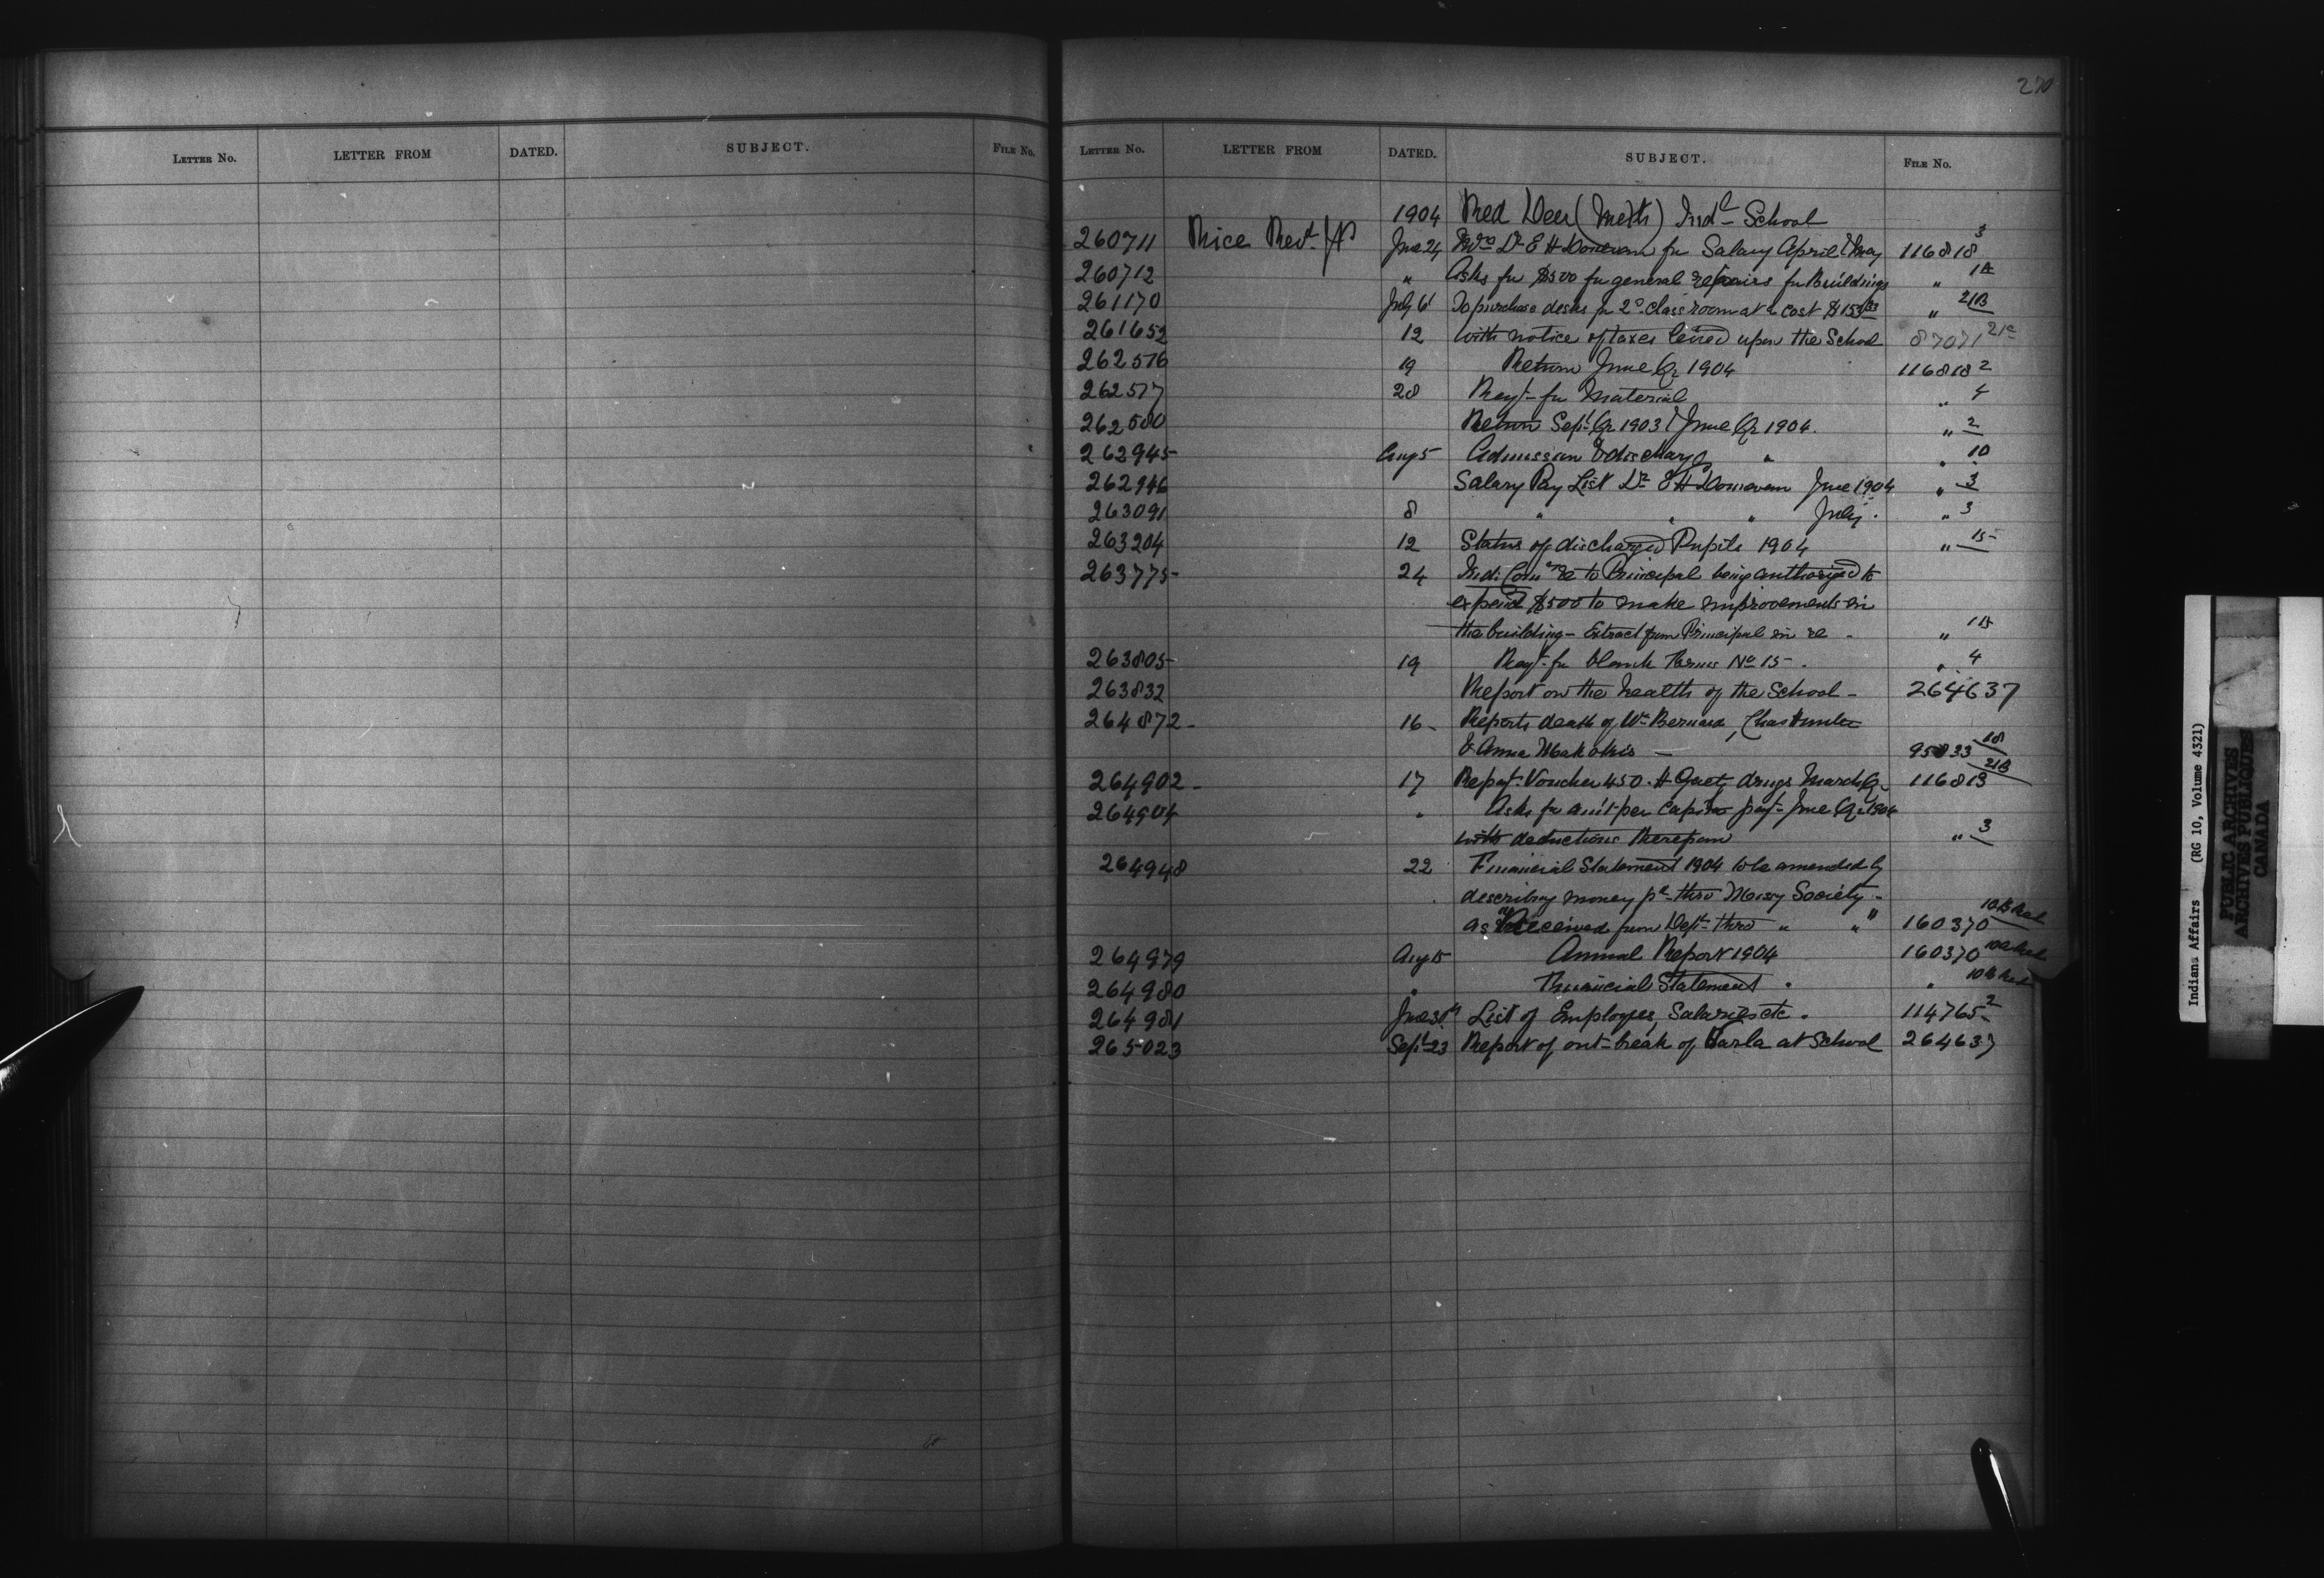 270
LETTER NO. LETTER FROM DATED. SUBJECT. FILE NO.
LETTER NO. LETTER FROM DATED. SUBJECT. FILE NO.
1904 Red Deer (Meth) Indl School
260711 Rice Revd J P June 24 Dr E H Donevan for Salary April & May 116818 3
260712 " Asks for $500 for general repairs for Buildings " 1A
261170 July 6 To purchase desks for 2d class room at a cost " 21B
261652 12 with notice of taxes levied upon the School 87071 21c
262576 19 Return June Qr 1904 116818 2
262577 28 Reqt for Material " 4
262580 Return Sept Qr 1903 & June Qr 1904. " 2
262945 Aug 5 Admission & discharge " " 10
262946 Salary Pay List Dr E H Donevan June 1904 " 3
263091 8 " " " July. " 3
263204 12 Status of discharged Pupils 1904 " 15
263775 24 Indi Comr re to Principal being authorized to
expend $500 to make improvements in
the building - Extract from Principal in re - "
263805 19 Reqt for blank Forms No 15 - . " 4
263832 Report on the health of the School - 264637
264872 - 16 - Reports death of Wm Bernard, Chas Hunter
& Anna Makokis - 95833
264902 - 17 Voucher 450. H drugs March Qr 116818 21B
264904 " Asks for am't per capita payt June Qr 1904
with deductions therefrom " 3
264948 22 Financial Statement 1904 to be amended by
describing money pd thro Missy Society -
as "Received from Dept thro " " " 160370
264979 Aug 15 Annual Report 1904 160370
264980 " Financial Statement " "
264981 June 30th List of Employees, Salaries etc. 114765 2
265023 Sept 23 Report of out-break of at School 264637
Indians Affairs (RG 10, Volume 4321)
PUBLIC ARCHIVES
ARCHIVES PUBLIQUES
CANADA